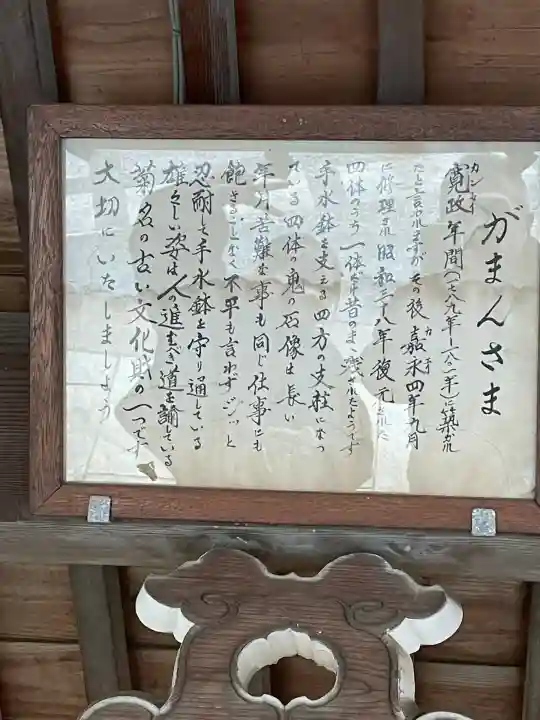 がまんさま
寛政年間(一七八九年―一八〇一年)に築かれ
カンセイ
たと言われますが その後 嘉永四年九月
カエイ
に修理され 昭和三十八年復元された
四体のうち 一体は昔のまゝ残されたようです
手水鉢を支える四方の支柱になっ
ている四体の鬼の石像は 長い
年月苦難な事も同じ仕事にも
飽きることなく 不平も言わず ジーッと
忍耐して手水鉢を守り通している
雄々しい姿は 人の進むべき道を諭している
菊名の古い文化財の一つです
大切にいたしましょう